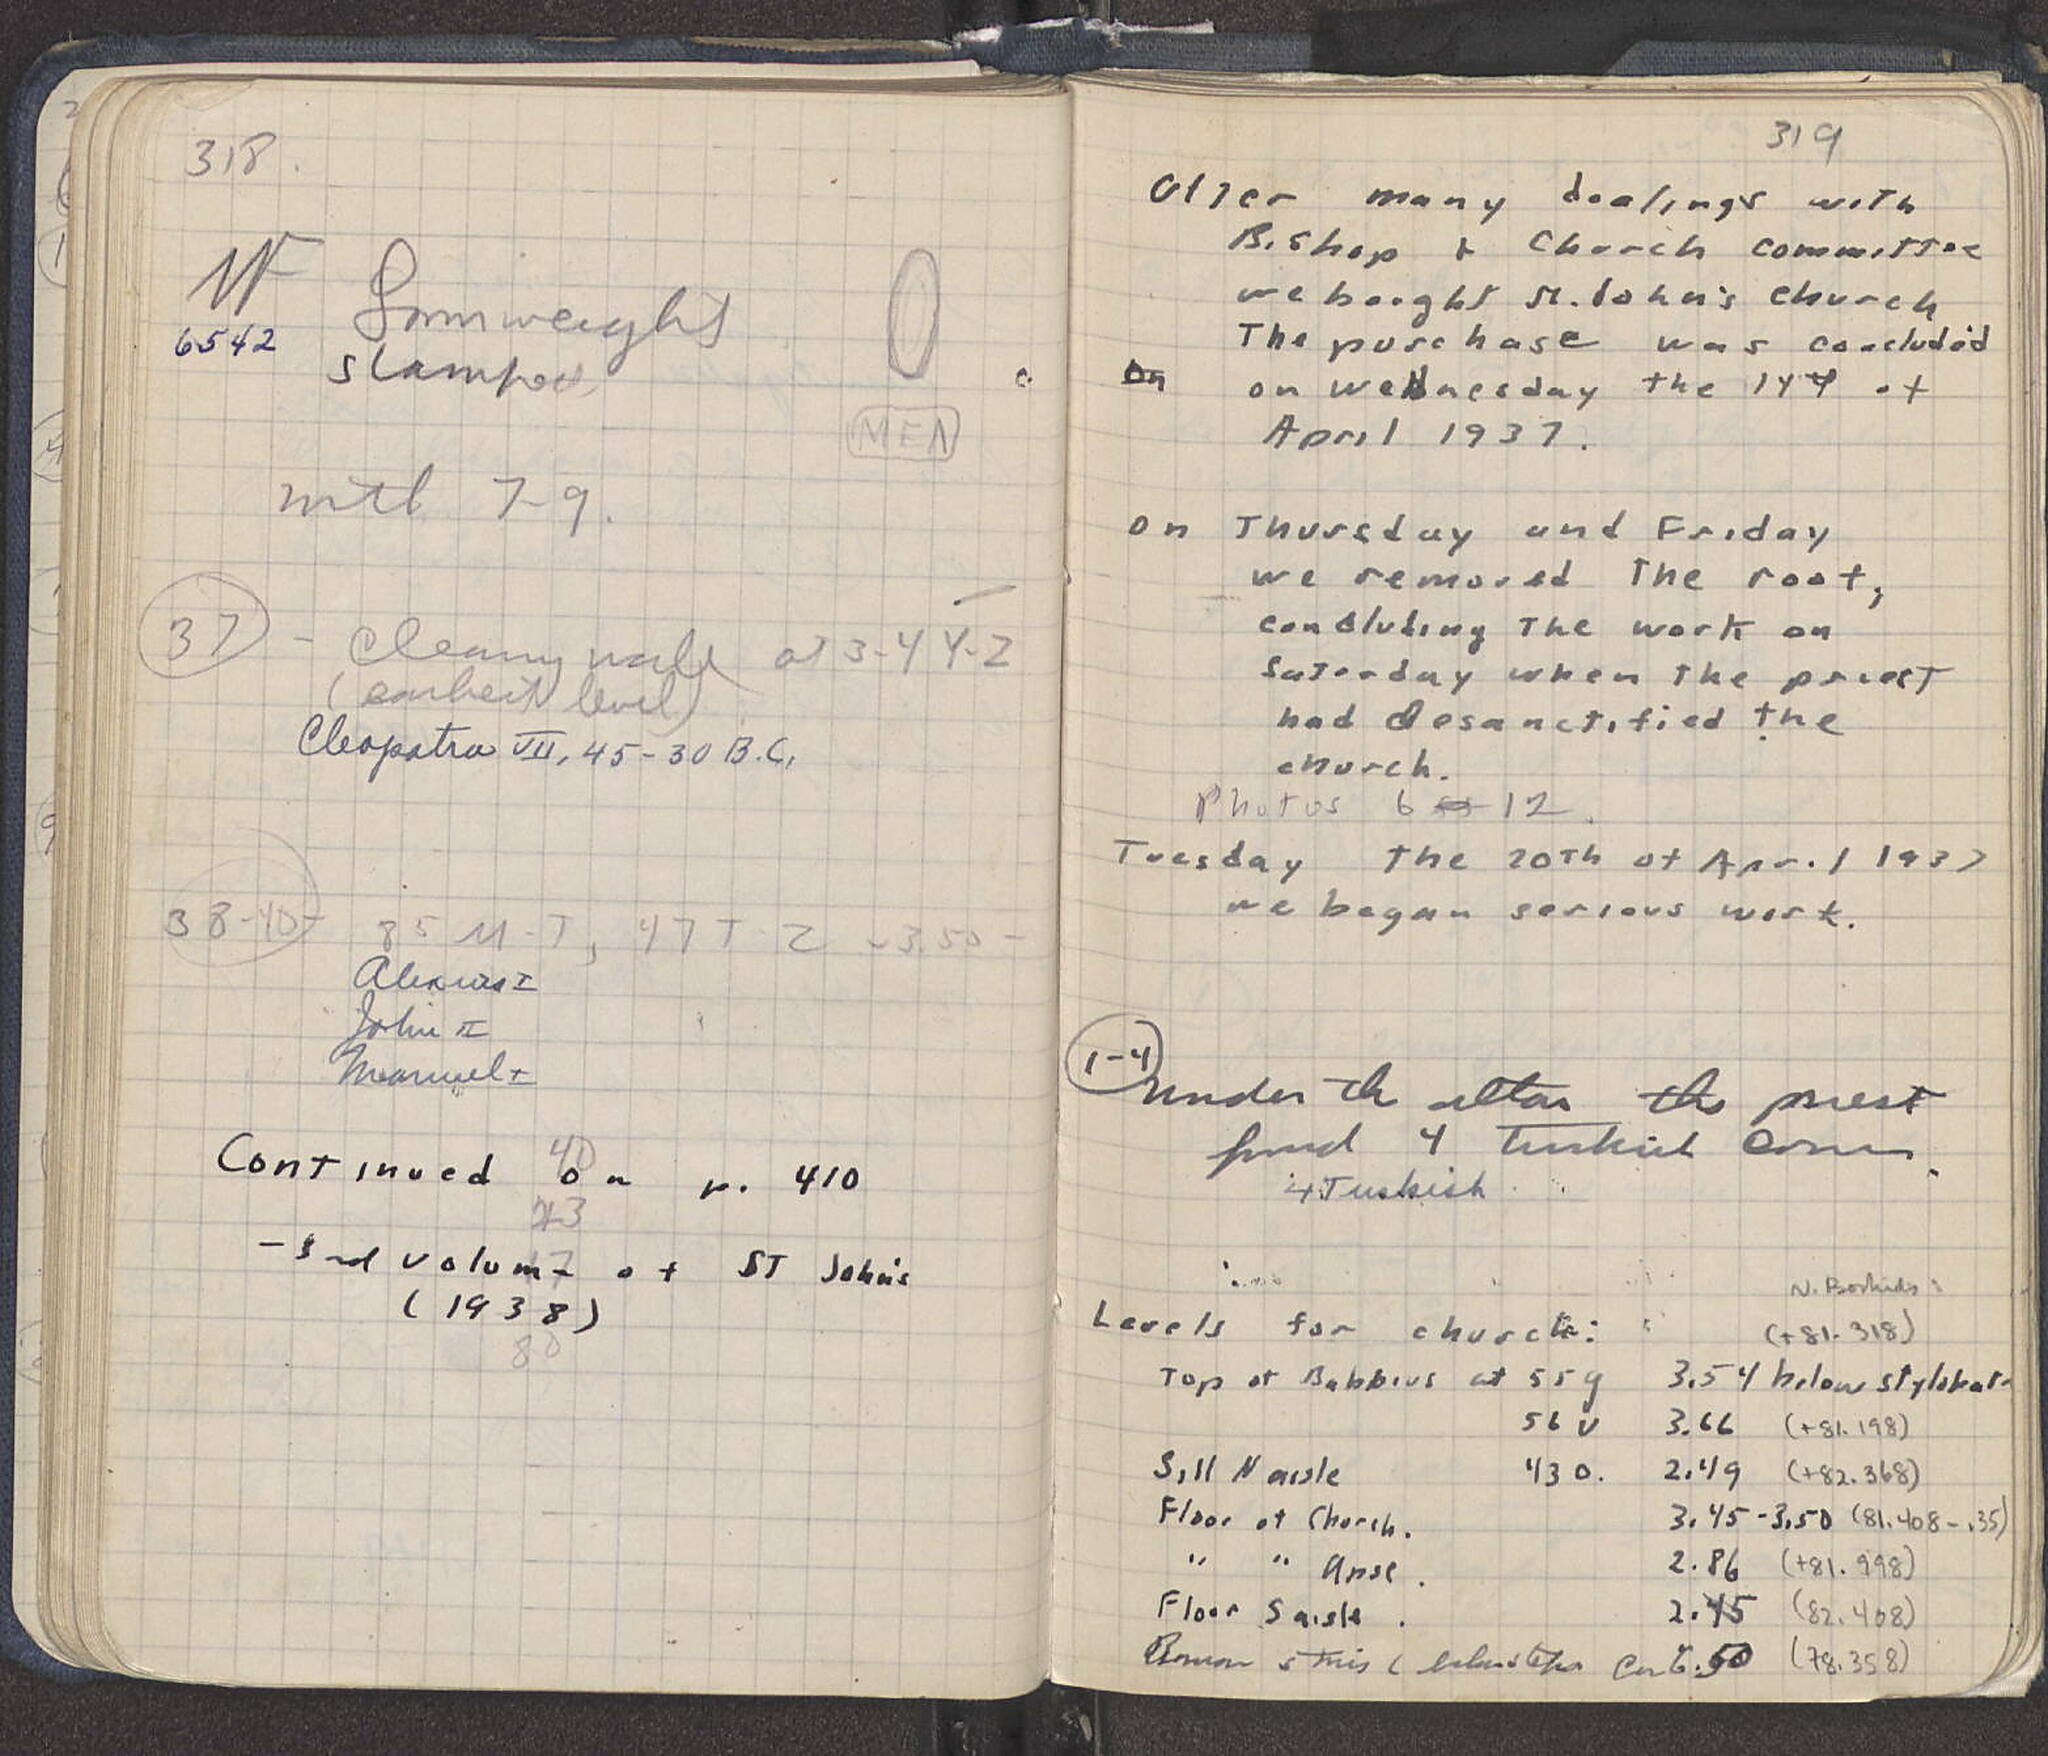 318.
MF
6542
Loomweight
stamped
MEN
with 7-9.
37 - Cleaning walls at 3-4 Y-Z
(earliest level)
Cleopatra VII, 45-30 B.C.
38-40 - 85 M-T, 47 T-Z -3.50 -
Alexius I
John II
Manuel I
40
Continued on p. 410
43
- 3rd volume of ST John's
(1938)
80
319
After many dealings with
Bishop & Church committee
we bought St. John's church
The purchase was concluded
on on Wednesday the 14 of
April 1937.
On Thursday and Friday
we removed the roof,
concluding the work on
Saturday when the priest
had desanctified the
church.
Photos 6 - 12.
Tuesday the 20th of April 1937
we began serious work.
1-4
Under the altar the priest
found 4 Turkish coins.
4 Turkish
N. Bookidis
Levels for church: (+81.318)
Top of Babbius at 55 g 3.54 below stylobate
56 v 3.66 (+81.198)
Sill N aisle 43 o. 2.49 (+82.368)
Floor of Church. 3.45-3.50 (81.408-.35)
" " Apse. 2.86 (+81.998)
Floor S aisle. 2.45 (82.408)
Roman .50 (78.358)